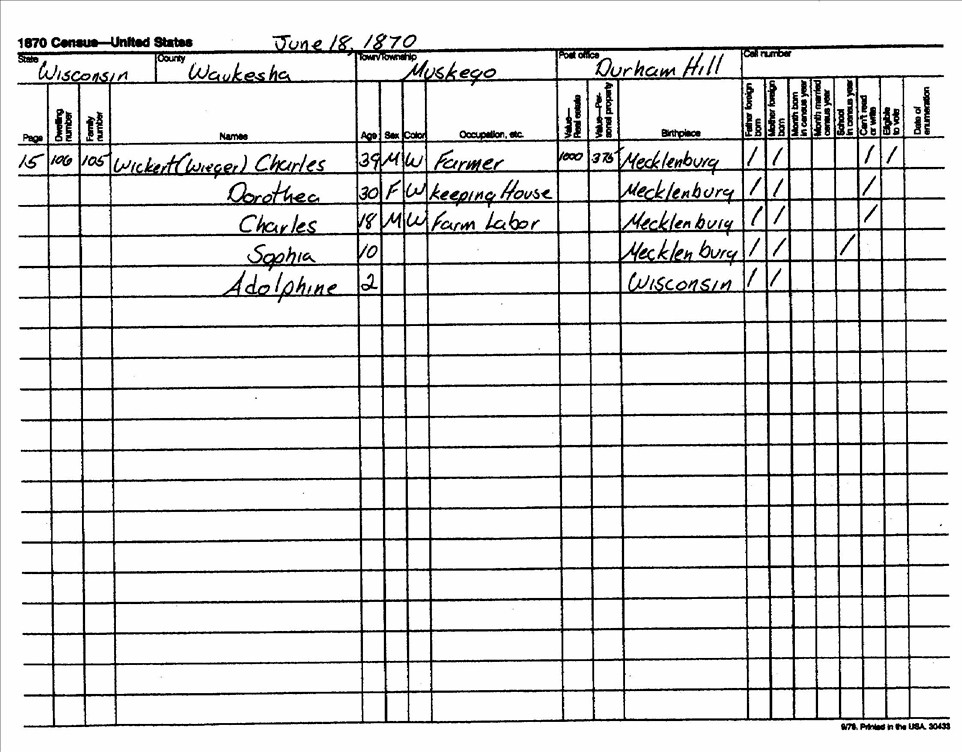 1870 Census—United States June 18, 1870
State Wisconsin County Waukesha Town/Township Muskego Post office Durham Hill Call number
Page Dwelling number Family number Names Age Sex Color Occupation, etc. Value—Real estate Value—Personal property Birthplace Father foreign born Mother foreign born Month born in census year Month married census year School in census year Can't read or write Eligible to vote Date of enumeration
15 106 105 Wickert (Wieger) Charles 39 M W Farmer 1000 375 Mecklenburg / / / /
Dorothea 30 F W keeping House Mecklenburg / / /
Charles 18 M W Farm Labor Mecklenburg / / /
Sophia 10 Mecklenburg / / /
Adolphine 2 Wisconsin / /
9/78. Printed in the USA. 30433